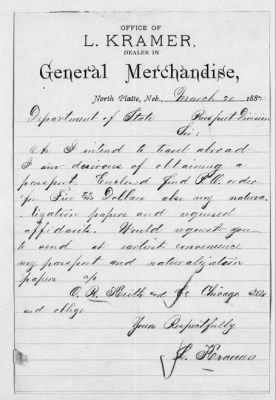 OFFICE OF
L. KRAMER,
DEALER IN
General Merchandise,
North Platte, Neb., March 20, 188
Department of State Passport Division
Sir:
As I intend to travel abroad
I am desirous of obtaining a
passport. Enclosed find P.O. order
for Five Dollars also my natura-
lization papers and required
affidavits. Would request you
to send at earliest convenience
my passport and naturalization
papers %
O. R. Keith and Co Chicago Ills
and oblige
Yours Respectfully
L. Kramer